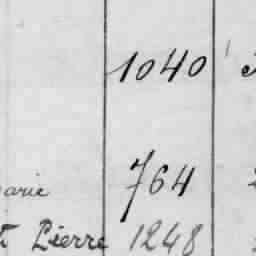 1040
arie 764
t Pierre 1248